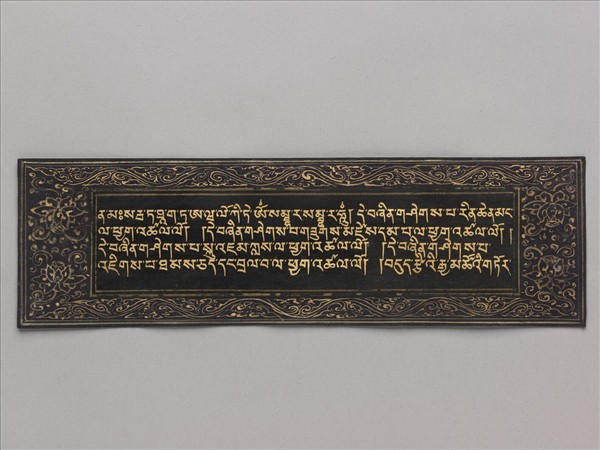 ན་མཿསརྦ་ཏ་ཐཱ་ག་ཏ་ཨ་ཝ་ལོ་ཀི་ཏེ་ཨོཾ་སམྦྷ་ར་སམྦྷ་ར་ཧཱུྃ། དེ་བཞིན་གཤེགས་པ་རིན་ཆེན་མང
ལ་ཕྱག་འཚལ་ལོ། །དེ་བཞིན་གཤེགས་པ་གཟུགས་མཛེས་དམ་པ་ལ་ཕྱག་འཚལ་ལོ། །
དེ་བཞིན་གཤེགས་པ་སྐུ་འཇམ་ཀླས་ལ་ཕྱག་འཚལ་ལོ། །དེ་བཞིན་གཤེགས་པ
འཇིགས་པ་ཐམས་ཅད་དང་བྲལ་བ་ལ་ཕྱག་འཚལ་ལོ། །བདུད་རྩིའི་རྒྱ་མཚོའི་གཏོར་